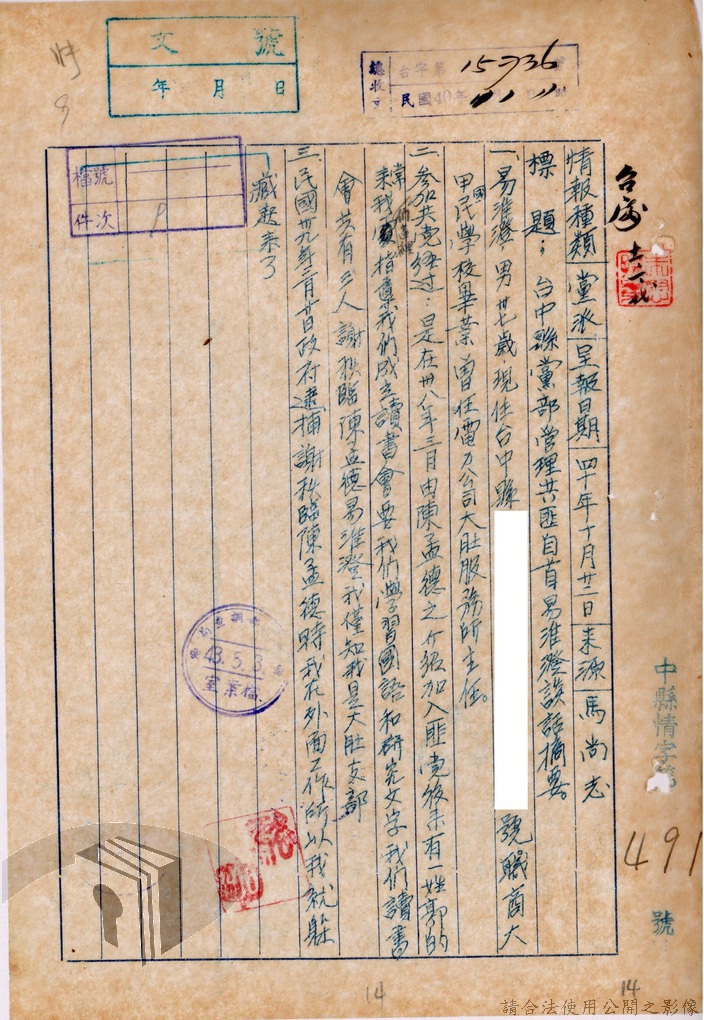 文號
年月日
總收文
台字第15736號
民國40年
中縣情字第491號
情報種類 黨派 呈報日期 四十年十月廿二日 來源 馬尚志
標題：台中縣黨部管理共匪自首易淮澄談話摘要。
一、易淮澄，男廿七歲現住台中縣 號職商大
甲國民學校畢業曾任電力公司大肚服務所主任。
二、參加共党經過：是在卅八年三月由陳孟德之介紹加入匪党後來有一姓郭的
常來我家指導我們成立讀書會要我們學習國語和研究文字我們讀書
會共有三人謝秋臨陳孟德易淮澄我僅知我是大肚支部
三、民國卅九年三月廿日政府逮捕謝秋臨陳孟德時我在外面工作所以我就躲
藏起來了
檔號
件次
43.5.3
檔案室
14
14
請合法使用公開之影像